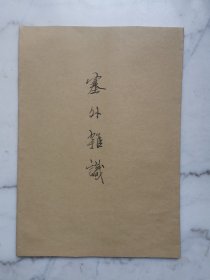 塞外雜識